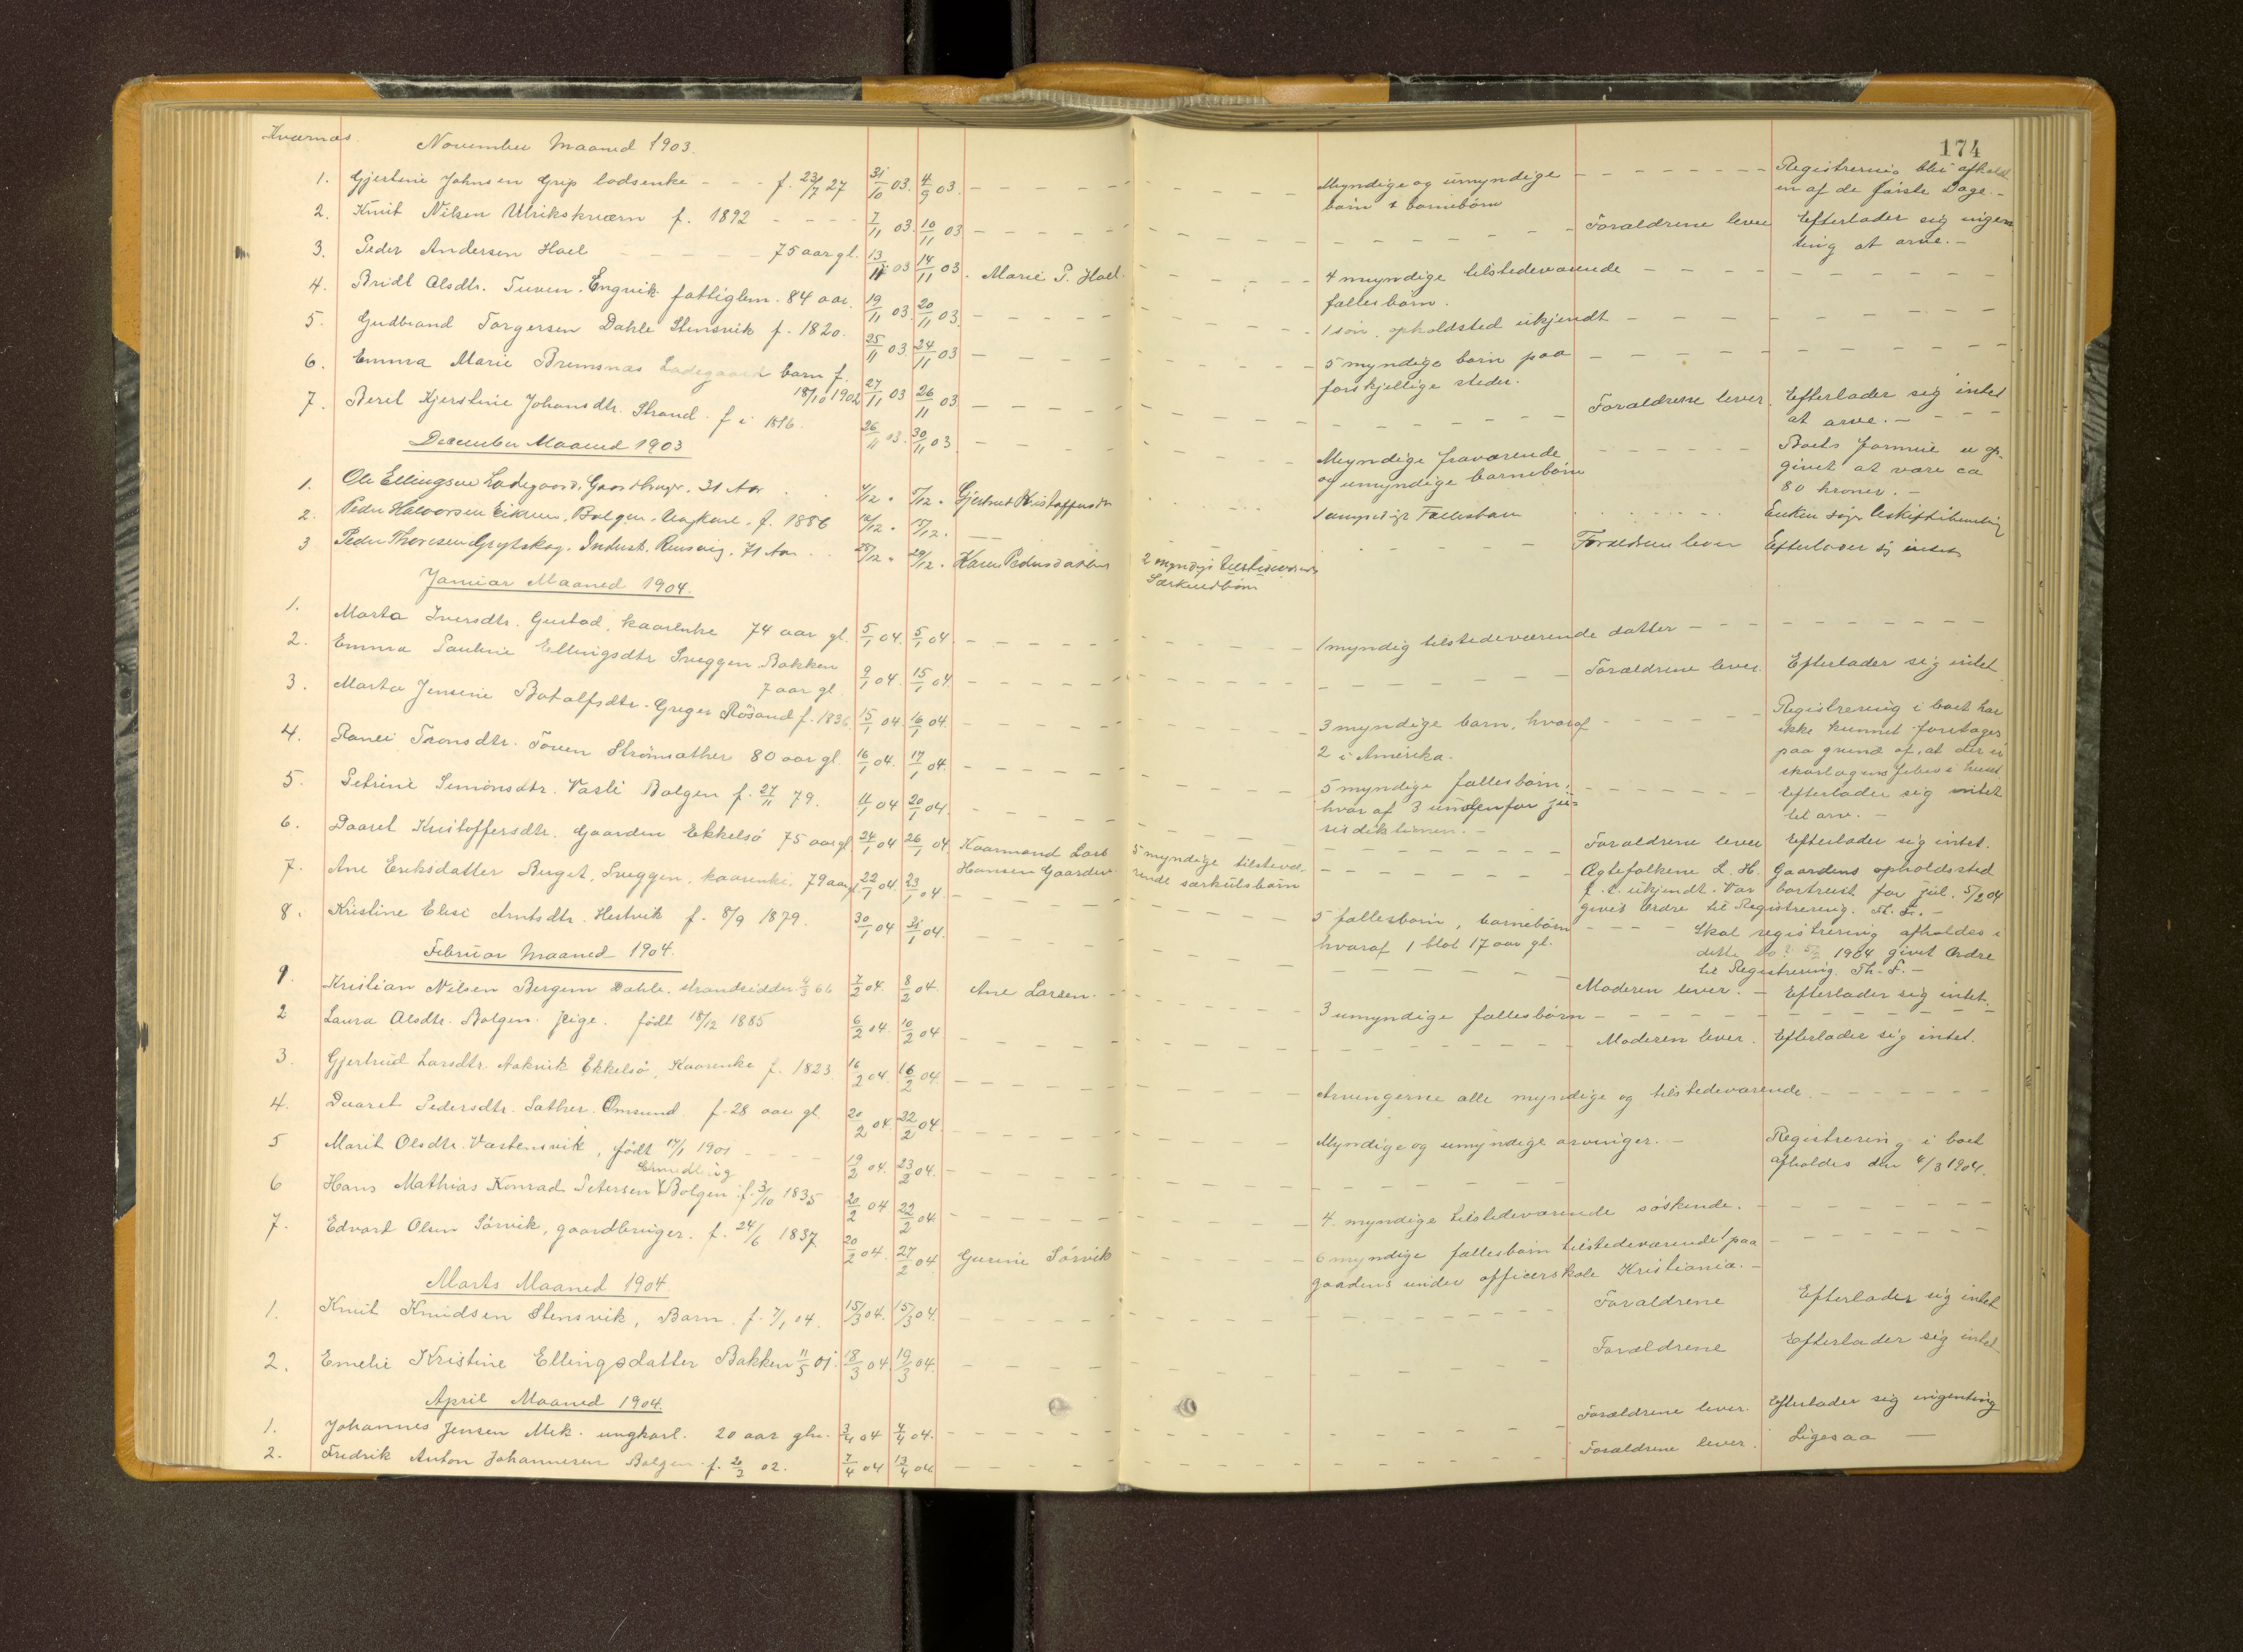 Kværnæs. November Maaned 1903.
174
1. Gjertine Johnsen Grip lodsenke - - - f. 23/7 27 31/10 03. 4/9 03. Myndige og umyndige Registrering blir afhold
børn & børnebørn en af de første Dage. -
2. Knut Nilsen Ulrikskværn f. 1892 - - - - 7/11 03. 10/11 03 Forældrene lever Efterlader sig ingen
ting at arve. -
3. Peder Andersen Hoel - - - - - 75 aar gl. 13/11 03 14/11 03. Marie P. Hoel. 4 myndige tilstedeværende
fællesbørn.
4. Bridt Olsdtr. Tuven. Engvik fattiglem. 84 aar. 19/11 03. 20/11 03. 1 søn, opholdsted ukjendt
5. Gudbrand Torgersen Dahle Stensvik f. 1820. 25/11 03. 24/11 03 5 myndige børn paa
forskjellige steder.
6. Emma Marie Bremsnæs Ladegaard barn f.
18/10 1902 27/11 03 26/11 03. Forældrene lever. Efterlader sig intet
at arve. -
7. Beret Kjerstine Johansdtr. Strand. f i 1816. 26/11 03. 30/11 03 Myndige fraværende Boets formue er op-
og umyndige barnebørn givet at være ca
80 kroner. -
December Maaned 1903
1. Ole Ellingsen Ladegaard, Gaardbruger. 31 Aar 4/12 " 5/12 " Gjertrud Kristoffersdtr 1 umyndigt Fællesbarn Enken søger Uskiftebevilling
2. Peder Halvorsen Eikrem, Bolgen, Ungkarl, f. 1886 12/12 " 15/12. Forældrene lever Efterlader sig intet
3 Peder Thoresen Grytskog, Indust. Rensvig. 71 Aar 25/12 " 29/12 " Karen Pedersdatter 2 myndige tilstedeværende
Særkuldbørn
Januar Maaned 1904.
1. Marta Iversdtr. Gustad, kaarenke 74 aar gl. 5/1 04. 5/1 04. 1 myndig tilstedeværende datter
2. Emma Pauline Ellingsdtr Sveggen Bakken
7 aar gl. 9/1 04. 15/1 04. Forældrene lever. Efterlader sig intet
3. Marta Jensine Botolfsdtr. Greger Røsand f. 1836. 15/1 04. 16/1 04. 3 myndige børn, hvoraf Registrering i boet har
2 i Amerika. ikke kunnet foretages
paa grund af, at der er
skarlagensfeber i huset
4. Ranei Tronsdtr. Toven Strømsæther 80 aar gl. 16/1 04. 17/1 04. 5 myndige fællesbørn, Efterlader sig intet
hvoraf 3 udenfor ju- til arv. -
risdiktionen. -
5. Petrine Simonsdtr. Vasli Bolgen f. 27/11 79. 11/1 04 20/1 04. Forældrene lever Efterlader sig intet.
6. Daaret Kristoffersdtr. Gaarden Ekkelsø 75 aar gl. 24/1 04 26/1 04. Kaarmand Lars 5 myndige tilstevæ- Ægtefolkene L. H. Gaardens opholdssted
Hansen Gaarden rende særkulsbørn f. t. ukjendt. Var bortreist før jul. 5/2 04
givet Ordre til Registrering. Th. F. -
7. Ane Eriksdatter Berget, Sveggen, kaarenke, 79 aar gl. 22/1 04. 23/1 04. 5 fællesbørn, barnebørn Skal registrering afholdes i
hvoraf 1 blot 17 aar gl. dette bo? 5/2 1904 givet Ordre
til Registrering. Th. F. -
8. Kristine Elise Arntsdtr. Hestvik f. 8/9 1879. 30/1 04 31/1 04. Moderen lever. - Efterlader sig intet.
Februar Maaned 1904.
1. Kristian Nilsen Bergem Dahle. strandsidder 4/3 66 7/2 04. 8/2 04. Ane Larsen. 3 umyndige fællesbørn
2 Laura Olsdtr. Bolgen. Pige. født 18/12 1885 6/2 04. 10/2 04 Moderen lever. Efterlader sig intet.
3. Gjertrud Larsdtr. Aakvik Ekkelsø, Kaarenke f. 1823 16/2 04. 16/2 04. Arvingerne alle myndige og tilstedeværende.
4. Daaret Pedersdtr. Sæther. Omsund f. 28 aar gl. 20/2 04. 22/2 04. Myndige og umyndige arvinger. - Registrering i boet
afholdes den 4/3 1904.
5 Marit Olsdtr. Vastensvik, født 14/1 1901 19/2 04. 23/2 04.
Grundling
6 Hans Mathias Konrad Petersen Bolgen f. 3/10 1835 20/2 04 22/2 04 4. myndige tilstedeværende søskende.
7. Edvart Olsen Sørvik, gaardbruger. f. 24/6 1837 20/2 04. 27/2 04 Gurine Sørvik 6 myndige fællesbørn tilstedeværende 1 paa
gaardens under officerskole Kristiania. -
Marts Maaned 1904
1. Knut Knudsen Stensvik, Barn. f. 7/1 04. 15/3 04. 15/3 04. Forældrene Efterlader sig intet
2. Emelie Kristine Ellingsdatter Bakken 11/5 01. 18/3 04. 19/3 04. Forældrene Efterlader sig intet
April Maaned 1904.
1. Johannes Jensen Mek. ungkarl. 20 aar gln. 3/4 04 7/4 04. Forældrene lever. Efterlader sig ingenting
2. Fredrik Anton Johannesen Bolgen. f. 20/3 02. 7/4 04 13/4 04 Forældrene lever. Ligesaa -